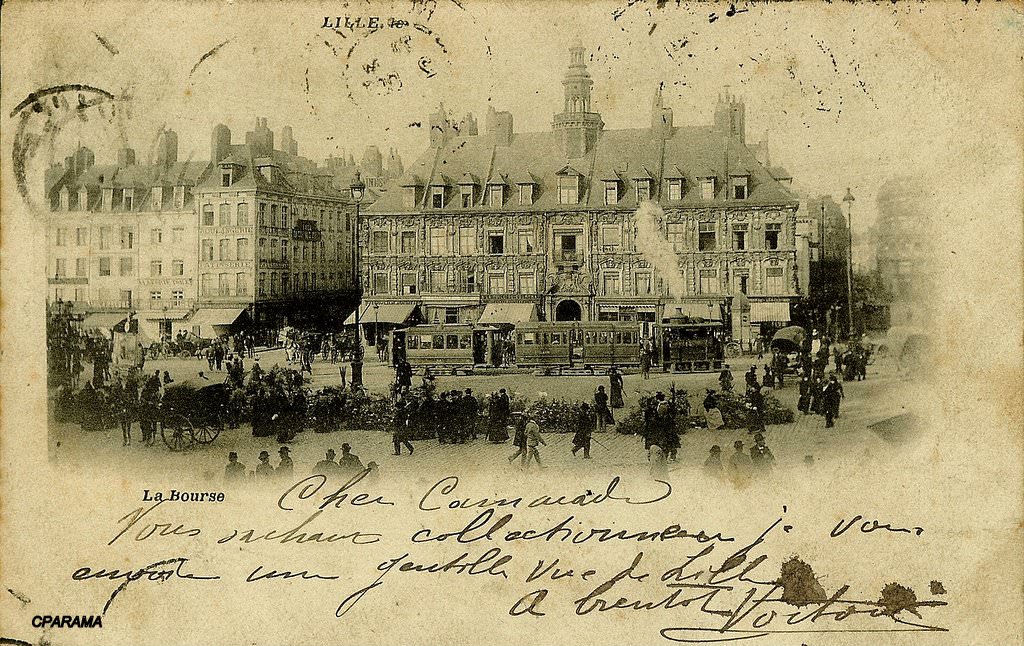 LILLE, le
La Bourse
Cher Camarade
Vous sachant collectionneur je vous
envoie une gentille Vue de Lille
A bientot
CPARAMA